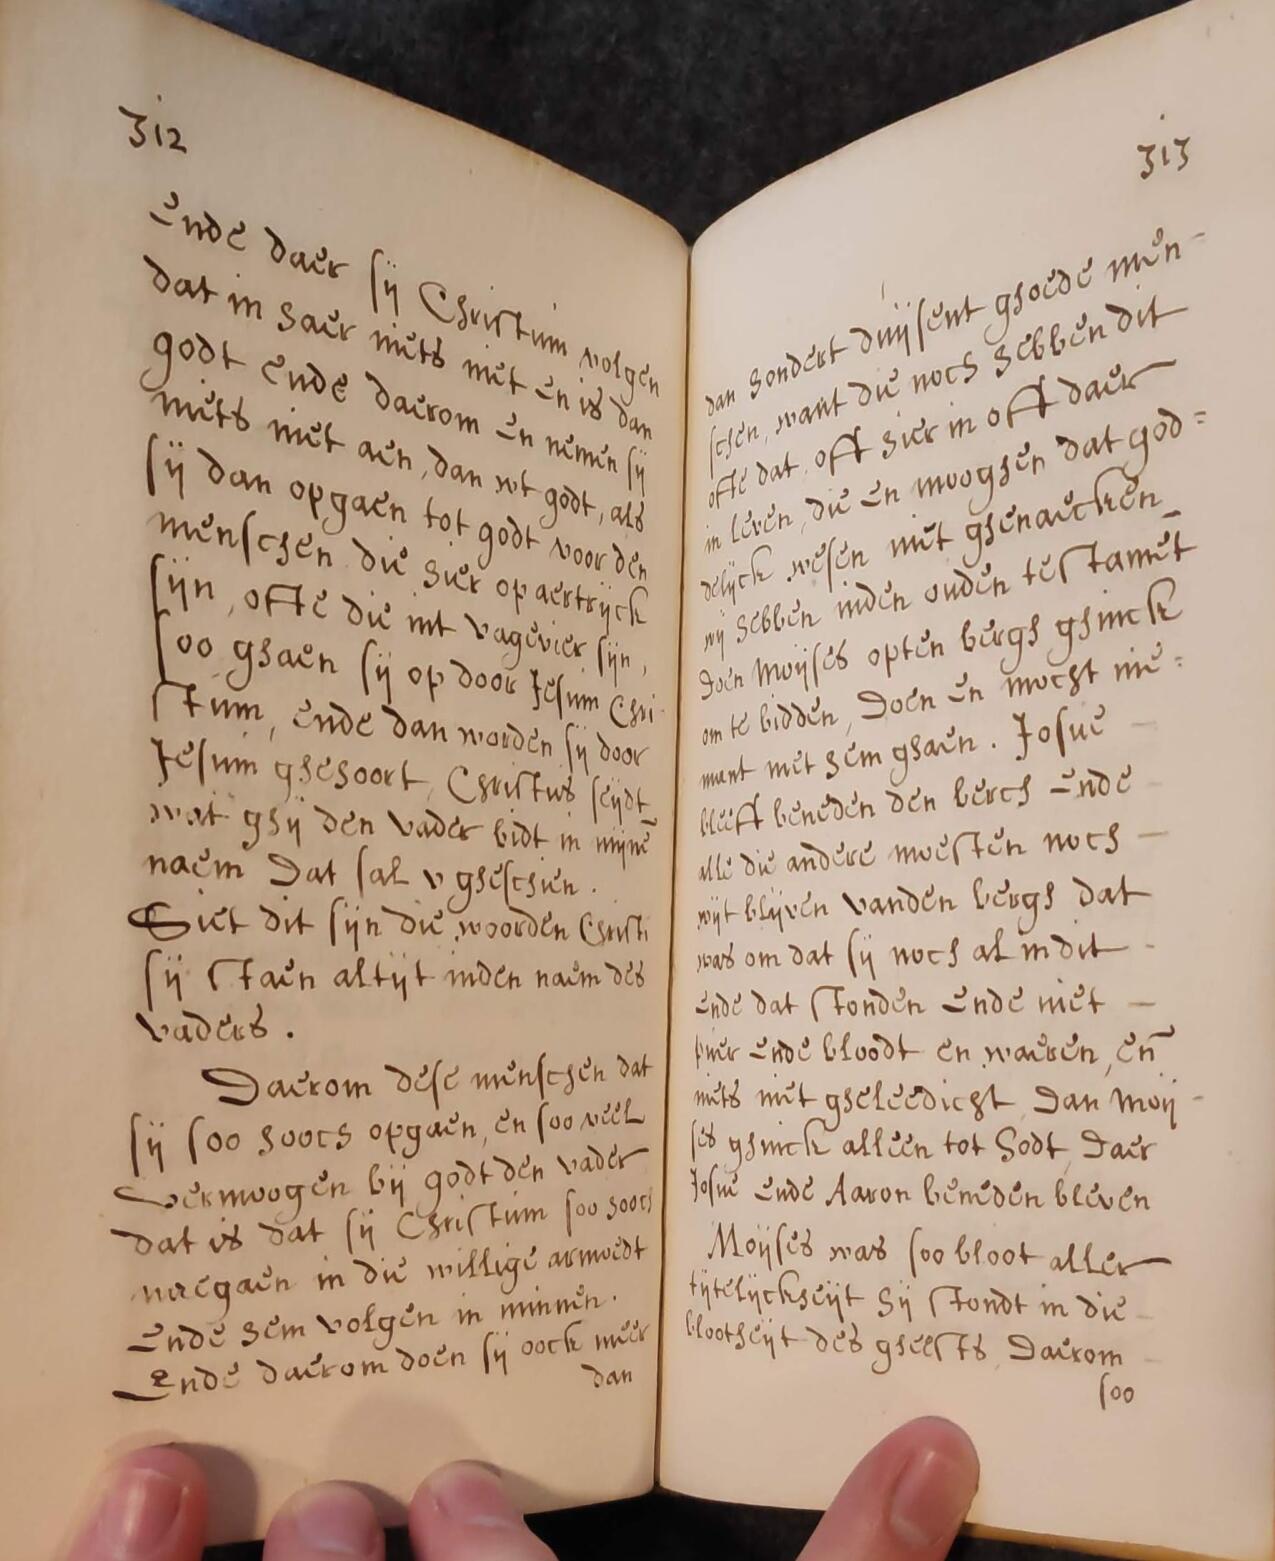 312
Ende daer sij Christum volgen
dat in haer niets niet en is dan
godt ende daerom en nemen sij
niets niet aen, dan wt godt, als
sij dan opgaen tot godt voor den
menschen die hier op aertrijck
sijn, ofte die int vagevier sijn,
soo ghaen sij op door Jesum Chri-
stum, ende dan worden sij door
Jesum ghehoort, Christus seijdt
wat ghij den vader bidt in mijnē
naem Dat sal v gheschien.
Siet dit sijn die woorden Christi
sij staen altijt inden naem des
vaders.
Daerom dese menschen dat
sij soo hooch opgaen, en soo veel
vermoogen bij godt den vader
dat is dat sij Christum soo hooch
naegaen in die willige armoedt
ende hem volgen in minnen.
Ende daerom doen sij oock meer
dan
313
dan hondert duijsent ghoede men-
schen, want die noch hebben dit
ofte dat, oft hier in oft daer
in leven, die en mooghen dat god=
delijck wesen niet ghenaecken_
wij hebben inden ouden testamēt
Doen Moijses opten bergh ghinck
om te bidden, Doen en mocht nie=
mant met hem ghaen. Josue –
bleeft beneden den berch Ende –
alle die andere moesten noch –
wijt blijven vanden bergh dat
was om dat sij noch al in dit -
ende dat stonden Ende niet –
puer ende bloodt en waeren, en̄
niets niet gheleedicht Dan Moij-
ses ghinck alleen tot Godt Daer
Josue ende Aaron beneden bleven
Moijses was soo bloot aller
tijtelijckheijt Hij stondt in die -
blootheijt des gheests Daerom –
soo